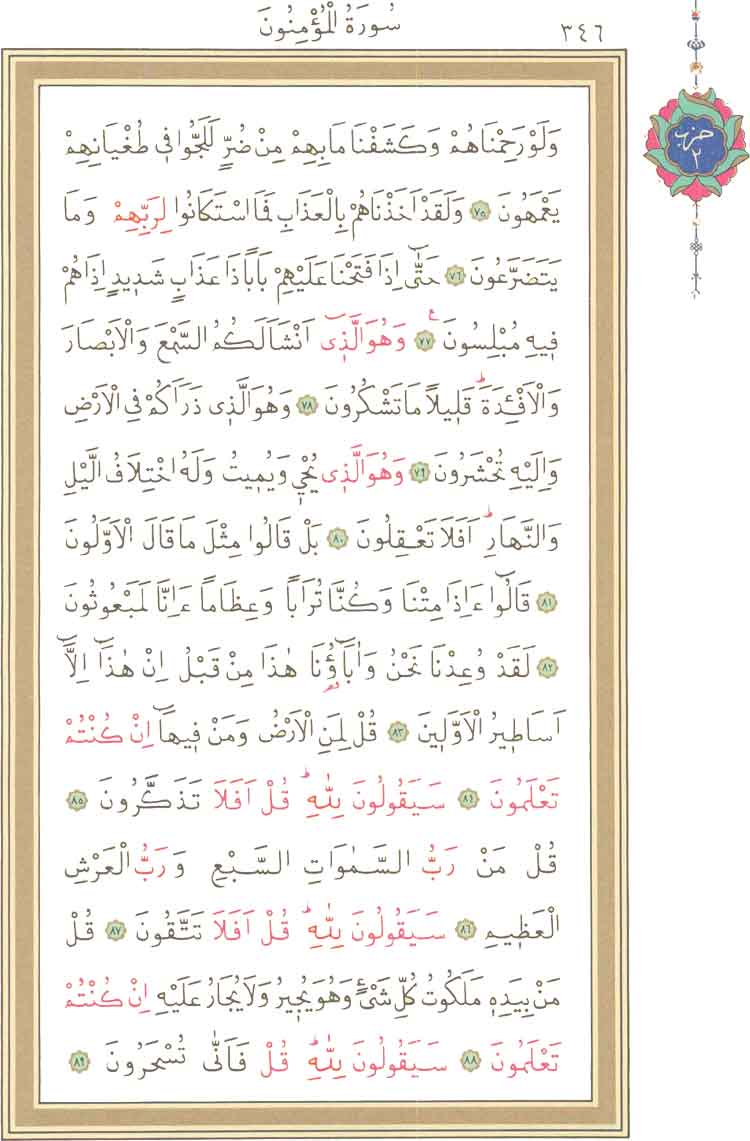 سُورَةُ الْمُؤْمِنُونَ
٣٤٦
حزب
٢
وَلَوْ رَحِمْنَاهُمْ وَكَشَفْنَا مَا بِهِمْ مِنْ ضُرٍّ لَلَجُّوا فٖي طُغْيَانِهِمْ
يَعْمَهُونَ ٧٥ وَلَقَدْ اَخَذْنَاهُمْ بِالْعَذَابِ فَمَا اسْتَكَانُوا لِرَبِّهِمْ وَمَا
يَتَضَرَّعُونَ ٧٦ حَتّٰٓى اِذَا فَتَحْنَا عَلَيْهِمْ بَابًا ذَا عَذَابٍ شَدٖيدٍ اِذَا هُمْ
فٖيهِ مُبْلِسُونَ ٧٧ ع وَهُوَ الَّذٖٓي اَنْشَاَ لَكُمُ السَّمْعَ وَالْاَبْصَارَ
وَالْاَفْـِٔدَةَ ط قَلٖيلًا مَا تَشْكُرُونَ ٧٨ وَهُوَ الَّذٖي ذَرَاَكُمْ فِي الْاَرْضِ
وَاِلَيْهِ تُحْشَرُونَ ٧٩ وَهُوَ الَّذٖي يُحْيٖ وَيُمٖيتُ وَلَهُ اخْتِلَافُ الَّيْلِ
وَالنَّهَارِ ط اَفَلَا تَعْقِلُونَ ٨٠ بَلْ قَالُوا مِثْلَ مَا قَالَ الْاَوَّلُونَ
٨١ قَالُٓوا ءَاِذَا مِتْنَا وَكُنَّا تُرَابًا وَعِظَامًا ءَاِنَّا لَمَبْعُوثُونَ
٨٢ لَقَدْ وُعِدْنَا نَحْنُ وَاٰبَٓاؤُ۬نَا هٰذَا مِنْ قَبْلُ اِنْ هٰذَٓا اِلَّٓا
اَسَاطٖيرُ الْاَوَّلٖينَ ٨٣ قُلْ لِمَنِ الْاَرْضُ وَمَنْ فٖيهَٓا اِنْ كُنْتُمْ
تَعْلَمُونَ ٨٤ سَيَقُولُونَ لِلّٰهِ ط قُلْ اَفَلَا تَذَكَّرُونَ ٨٥
قُلْ مَنْ رَبُّ السَّمٰوَاتِ السَّبْعِ وَرَبُّ الْعَرْشِ
الْعَظٖيمِ ٨٦ سَيَقُولُونَ لِلّٰهِ ط قُلْ اَفَلَا تَتَّقُونَ ٨٧ قُلْ
مَنْ بِيَدِهٖ مَلَكُوتُ كُلِّ شَيْءٍ وَهُوَ يُجٖيرُ وَلَا يُجَارُ عَلَيْهِ اِنْ كُنْتُمْ
تَعْلَمُونَ ٨٨ سَيَقُولُونَ لِلّٰهِ ط قُلْ فَاَنّٰى تُسْحَرُونَ ٨٩